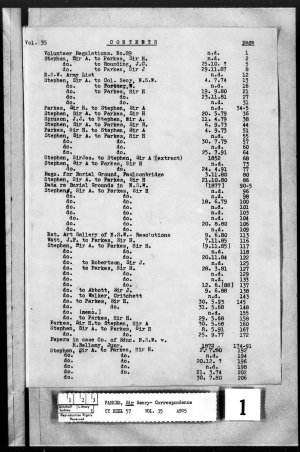 Vol. 35 CONTENTS page
Volunteer Regulations. No.89 n.d. 1
Stephen, Sir A. to Parkes, Sir H. n.d. 2
do. to Mounding, J.G. 25.10. 3
do. to Parkes, Sir J 29.11.87 8
N.S.W. Army List n.d. 12
Stephen, Sir A. to Col. Secy, N.S.W. 4. 7.74 13
do. to n.d. 16
do. to Parkes, Sir H 19. 9.80 21
do. do. 23.11.81 27
do. do. n.d. 31
Parkes, Sir H. to Stephen, Sir A n.d. 34-5
Stephen, Sir A. to Parkes, Sir H 20. 5.79 36
Stephen, Sir A. 11. 4.79 38
Stephen, Sir A. to Parkes, Sir H. 6. 9.73 44
Parkes, Sir H. to Stephen, Sir A 4. 9.73 51
Stephen, Sir A. to Parkes, Sir H. n.d. 55
do. do. 30. 7.79 57
do. do. n.d. 60
do. do. 25. 3.91 64
Stephen, Sir Jas. to Stephen, Sir A (extract) 1852 68
Stephen, Sir A to Parkes, Sir H n.d. 73
do. do. 24. 4.91 77
Regs. for Burial Ground, Faulconbridge 3.11.80 80
Stephen, Sir A. to Parkes, Sir H 21.10.80 86
Data re Burial Grounds in N.S.W. (1887) 90-5
Stephen, Sir A. to Parkes, Sir H n.d. 96
do. do. n.d. 98
do. do. 18. 6.79 100
do. do. n.d. 101
do. do. n.d. 103
do. do. n.d. 104
do. do. 20. 8.80 106
do. do. n.d. 109
Nat. Art Gallery of N.S.W- Resolutions 9. 6.80 113
Watt, J.P. to Parkes, Sir H. 7.11.85 116
Stephen, Sir A. to Parkes, Sir H. (9.11.85) 117
do. do. n.d. 118
do. do. 20.11.84 122
do. to Robertson, Sir J. n.d. 125
do. to Parkes, Sir H. 28. 3.81 127
do. do. n.d. 129
do. do. n.d. 135
do. do. 12. 6.(88) 137
do. to Abbott, Sir J 9. 6.88 138
do. to Walker, Critchett n.d. 143
do. to Parkes, Sir H. 30. 5.83 145
do. do. 31. 5.68 148
do. (memo.) n.d. 155
do. to Parkes, Sir H. 29. 5.68 158
Parkes, Sir H. to Stephen, Sir A 30. 5.68 160
Stephen, Sir A. to Parkes, Sir H 8. 3.91 167
do. do. 25. 9.77 172
Papers in case Co. of Educ. N.S.W. v.
R. Bellamy, Junr. 1872 174-91
Stephen, Sir A. to Parkes, Sir H. 7.80 192
do. do. n.d. 194
do. do. 20.12. 196
do. do. n.d. 198
do. do. 21. 3.74 202
do. do. 30. 7.80 206
PARKES, Sir Henry- Correspondence
CY REEL 57 VOL. 35 A905
1